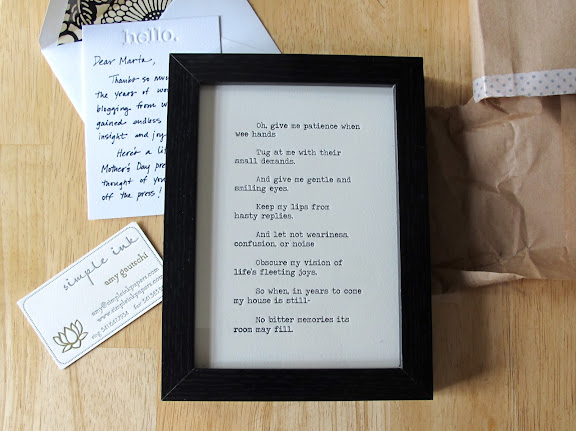 hello.
Dear Marta,
Thanks so
the years of
blogging from
gained endless
insight and joy
Here's a
Mother's Day
thought of
off the press!
Oh, give me patience when
wee hands
Tug at me with their
small demands.
And give me gentle and
smiling eyes.
Keep my lips from
hasty replies.
And let not weariness,
confusion, or noise
Obscure my vision of
life's fleeting joys.
So when, in years to come
my house is still-
No bitter memories its
room may fill.
simple ink
amy gautschi
amy@simpleinkpapers.com
www.simpleinkpapers.com